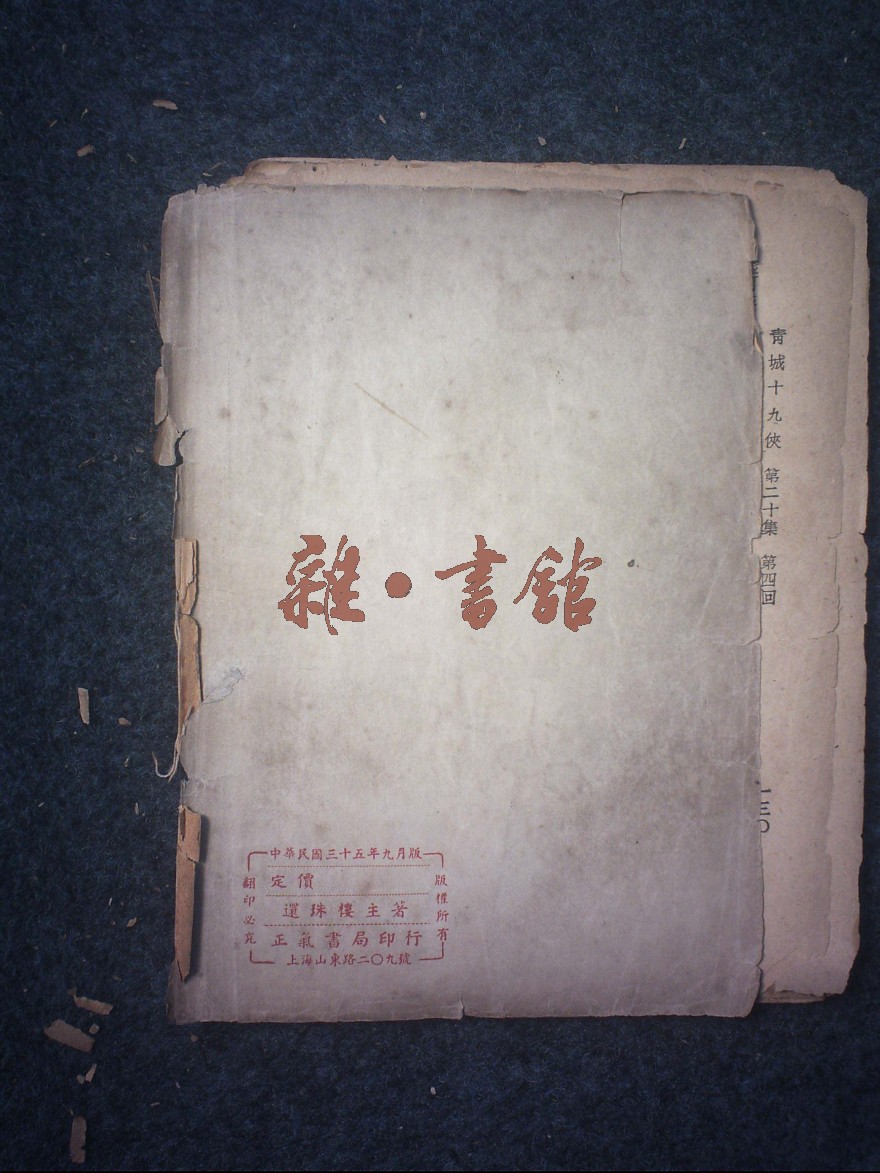 青城十九俠 第二十集 第四回
一三〇
雜·書館
中華民國三十五年九月版
定價
還珠樓主著
正氣書局印行
上海山東路二〇九號
版權所有
翻印必究